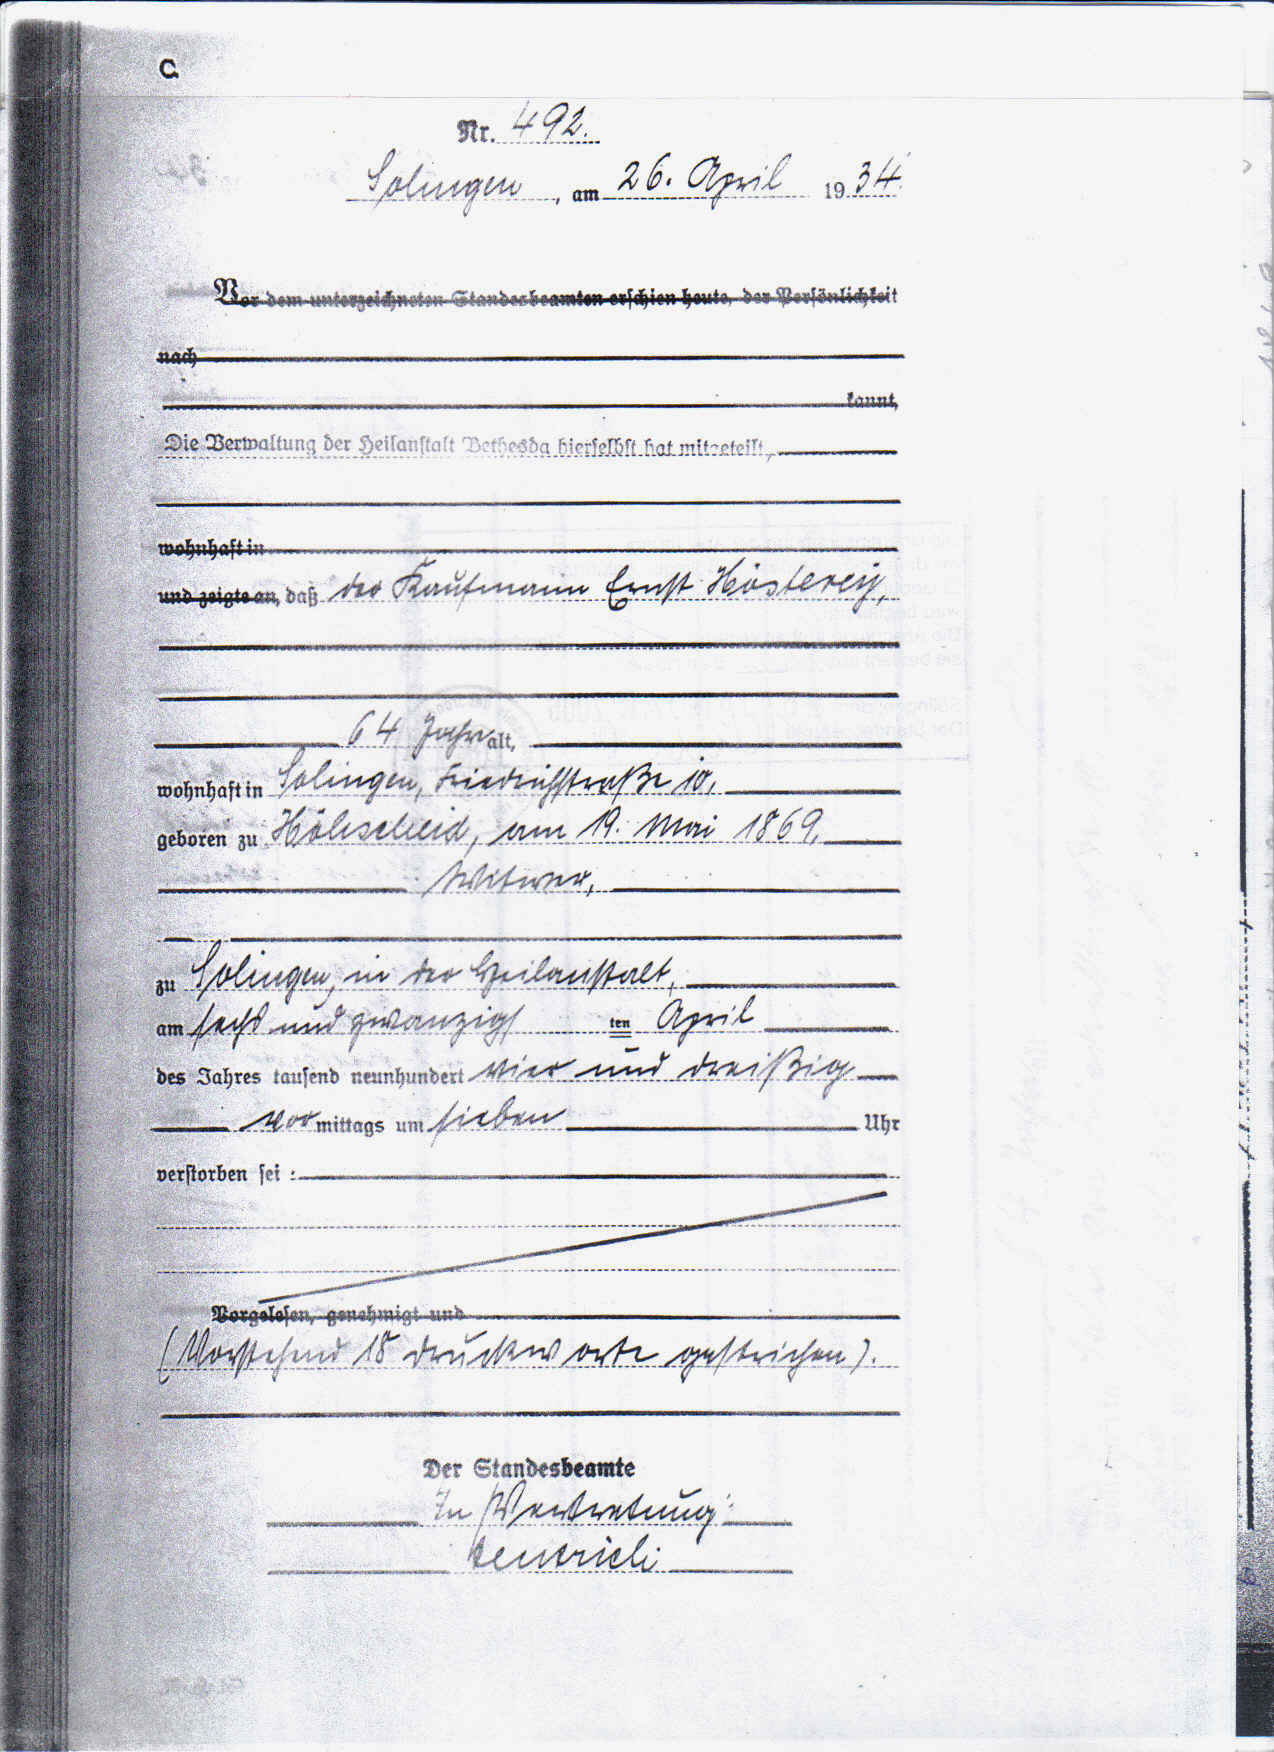 C.
Nr. 492.
Solingen, am 26. April 1934.
Vor dem unterzeichneten Standesbeamten erschien heute, der Persönlichkeit
nach
kannt,
Die Verwaltung der Heilanstalt Bethesda hierselbst hat mitgeteilt,
wohnhaft in
und zeigte an, daß der Kaufmann Ernst Hösterey,
64 Jahre alt,
wohnhaft in Solingen, Friedrichstraße 10,
geboren zu Höhscheid, am 19. Mai 1869,
Witwer,
zu Solingen, in der Heilanstalt,
am sechs und zwanzigsten April
des Jahres tausend neunhundert vier und dreißig
vormittags um sieben Uhr
verstorben sei:
Vorgelesen, genehmigt und
(Vorstehend 18 Druckworte gestrichen).
Der Standesbeamte
In Vertretung: